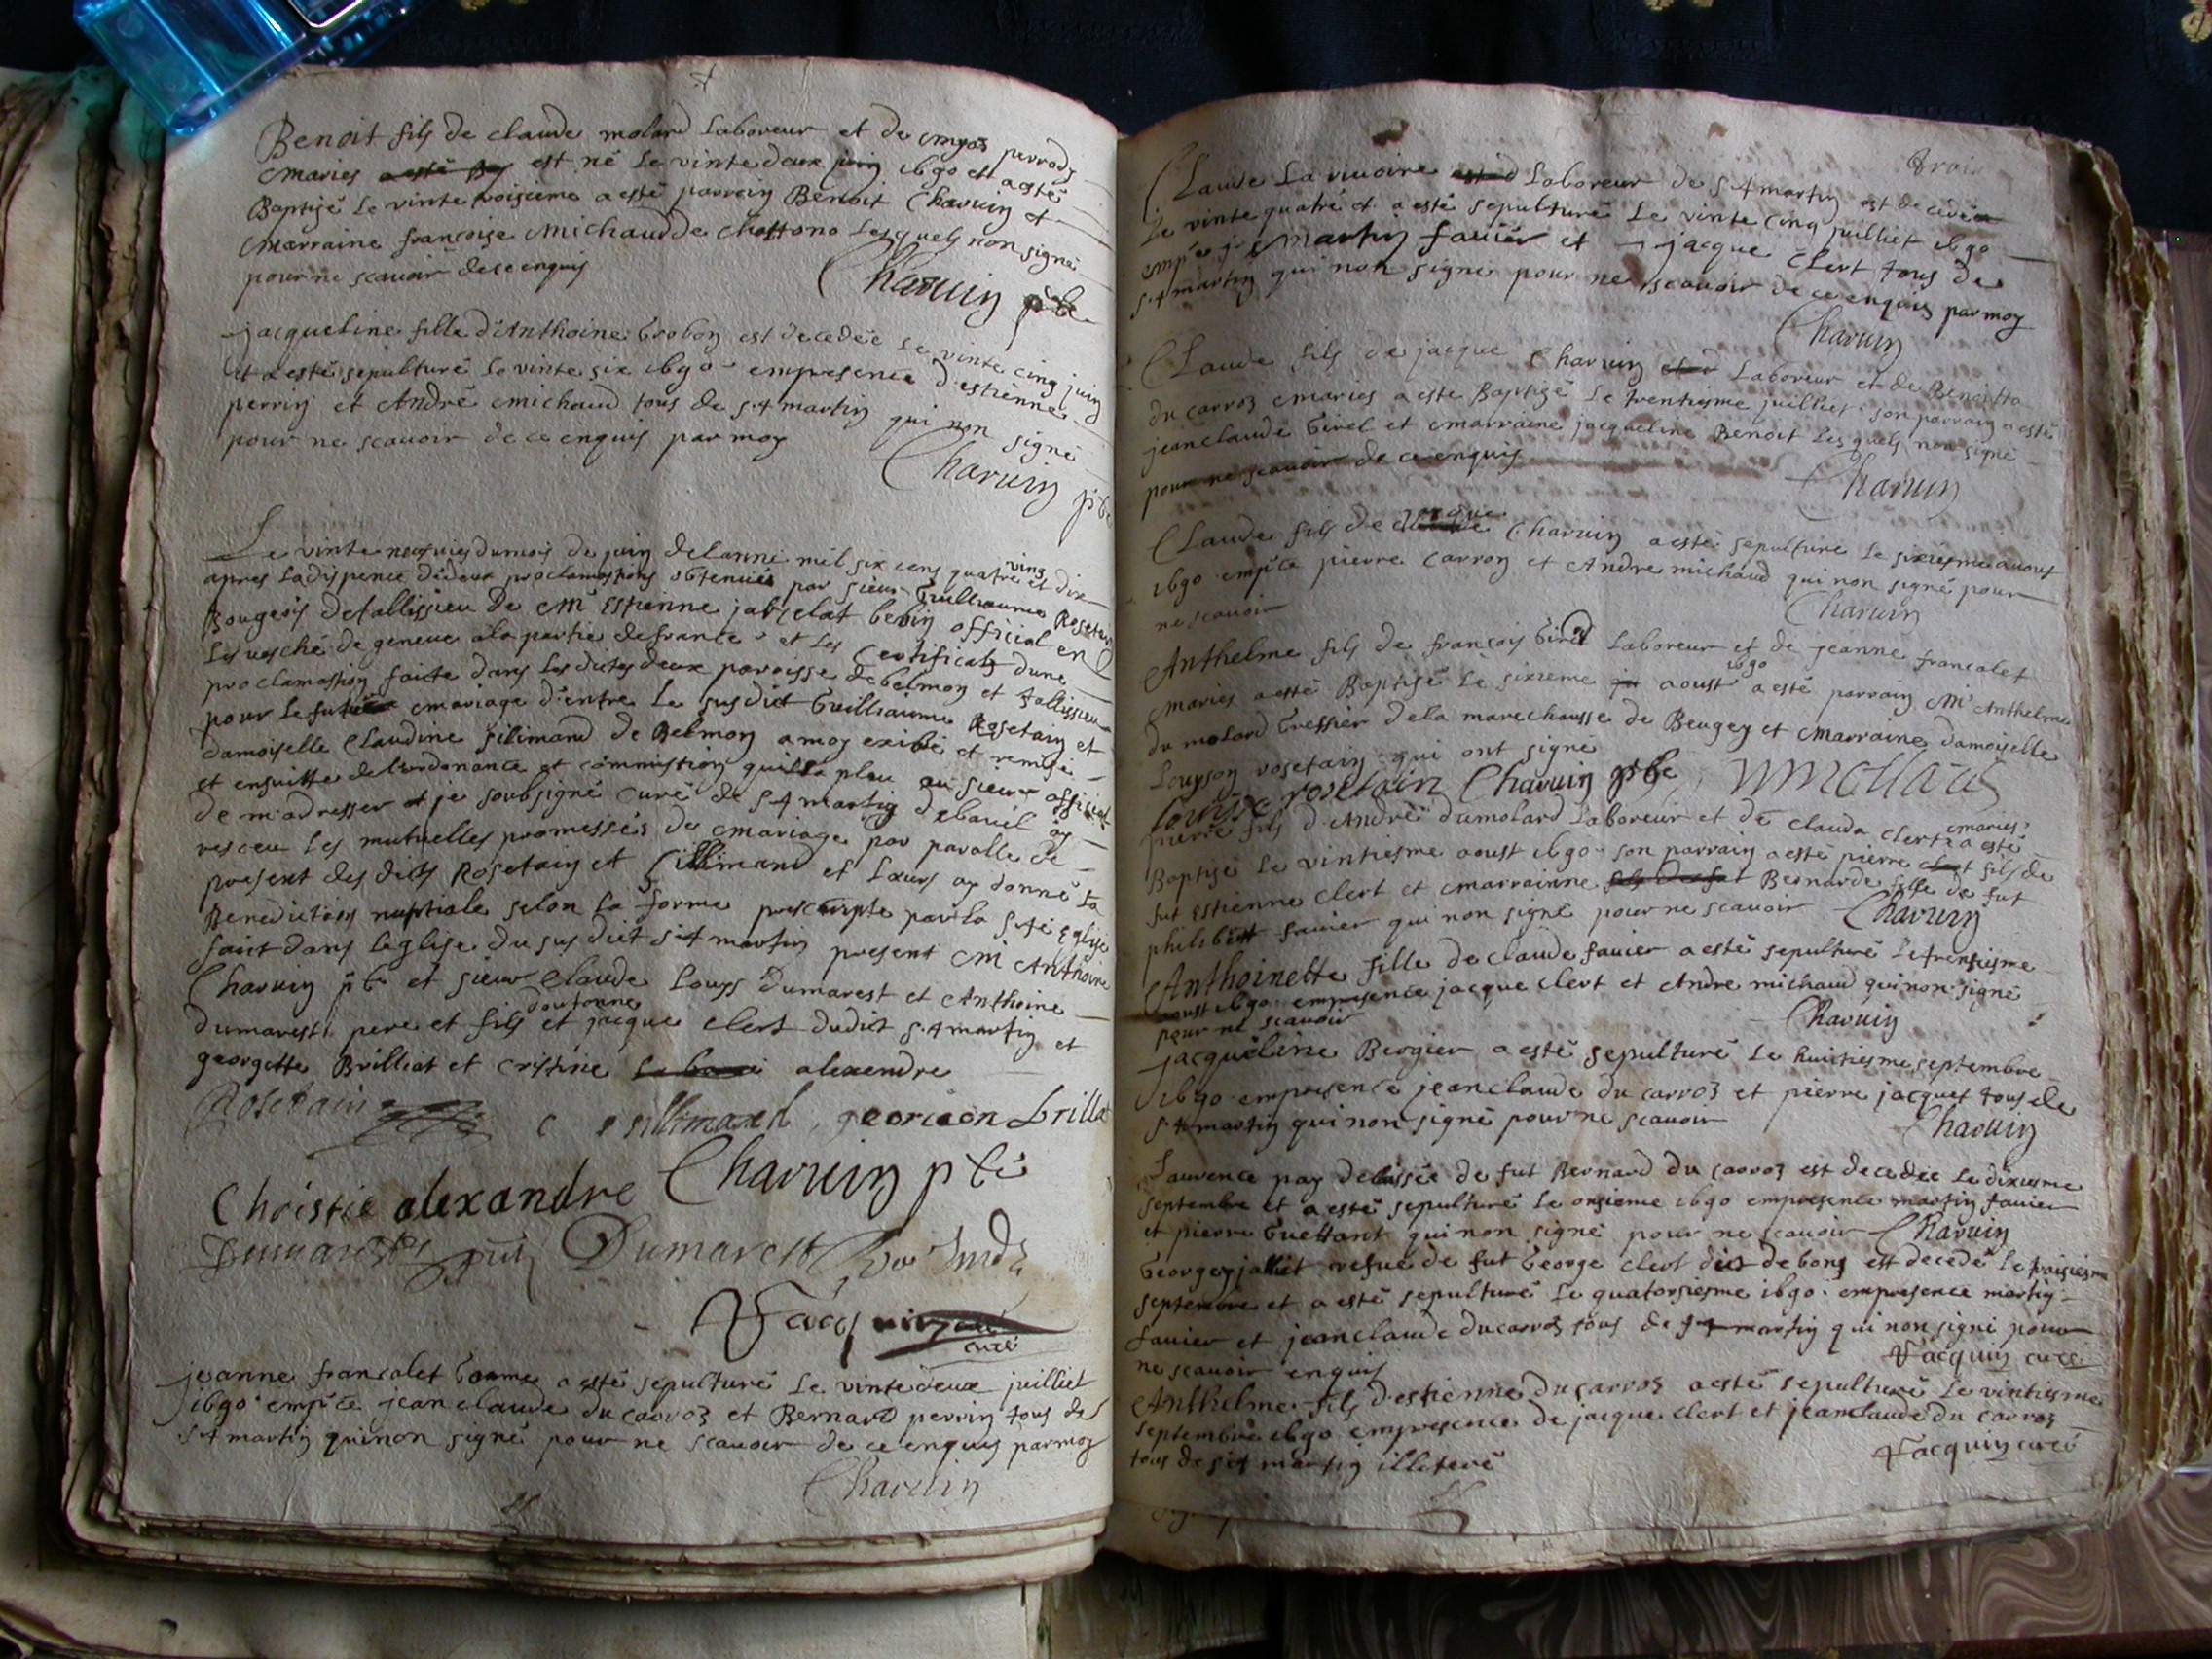 Benoit fils de claude molard Laboreur et de
maries est né Le vinte deux juin 1690 et a esté
Baptisé Le vinte troisieme a esté parrain Benoit Charvin et
marraine françoise Michaud de Lesquels non signé
pour ne scavoir de ce enquis
Charvin pbre
jacqueline fille d'Anthoine Grobon est decedée Le vinte cinq juin
et a esté sepulturé Le vinte six 1690 empresence d'estienne
perrin et André michaud tous de St martin qui non signé
pour ne scavoir de ce enquis par moy
Charvin pbre
Le vinte neufvies du mois de juin de lanné mil six cens quatre vins et dix
apres la dispence de deux proclamations obtenues par sieur Guilliaume Rosetain
Bourgeois de tallissieu de Mr Estienne official en
Levesché de geneve à la partie de france et Les Certificats dune
proclamation faicte dans les dictes deux paroisse de belmon et tallissieu
pour Le futur mariage d'entre Le susdict Guilliaume Rosetain et
damoiselle Claudine fillimand de Belmon a moy exibé et remise
et ensuitte de L'ordonance et commission quil a pleu au sieur official
de m'adresser je soubsigné curé de St martin debavel ay
resceu Les mutuelles promesses de mariage par parolle de
present des dicts Rosetain et fillimand et Leurs ay donné La
Benediction nuptiale selon La forme prescripte par La Ste Eglise
faict dans Leglise du susdict St martin present Mr Anthoine
Charvin pbre et sieur Claude Louys Dumarest et Anthoine
Dumarest pere et fils et jacque clert dudict St martin et
georgette Brilliat et cristine alexendre
Rosetain C fillimand
Christie alexandre Charvin pbre
Dumarest Dumarest
Jacquin curé
jeanne francalet a esté sepulturé Le vinte deux juilliet
1690 empce jean claude du carroz et Bernard perrin tous de
St martin qui non signé pour ne scavoir de ce enquis par moy
Charvin
Claude La vivoire Laboreur de St martin est decedé
Le vinte quatre et a esté sepulturé Le vinte cinq juilliet 1690
Martin favier et jacque Clert tous de
St martin qui non signé pour ne scavoir de ce enquis par moy
Charvin
Claude fils de jacque Charvin Laboreur et de Benoitte
du carroz maries a este Baptizé Le trentiesme juilliet son parrain a esté
jeanclaude Girel et marraine jacqueline Benoit Lesquels non signé
pour ne scavoir de ce enquis
Charvin
Claude fils de jacque Charvin a este sepulturé Le sixiesme aoust
1690 empce pierre carron et Andre michaud qui non signé pour
ne scavoir
Charvin
Anthelme fils de françois Girel Laboreur et de jeanne francalet
maries a esté Baptisé Le sixieme aoust 1690 a esté parrain Mr Anthelme
du molard Greffier de la marechausse de Beugey et marraine damoiselle
Louyson rosetain qui ont signé
Louise rosetain Charvin pbre
pierre fils d'André dumolard Laboreur et de Clauda Clert maries a esté
Baptisé Le vintiesme aoust 1690 son parrain a esté pierre fils de
fut Estienne Clert et marrainne Bernarde fille de fut
philibert favier qui non signé pour ne scavoir Charvin
Anthoinette fille de claude favier a esté sepulturé Le trentiesme
aoust 1690 empresence jacque clert et Andre michaud qui non signé
pour ne scavoir
Charvin
jacqueline Bergier a esté sepulturé Le huictiesme septembre
1690 empresence jeanclaude du carroz et pierre jacquet tous de
St martin qui non signé pour ne scavoir
Charvin
Laurence pay delaissée de fut Bernard du carroz est decedée Le dixiesme
septembre et a esté sepulturé Le onsieme 1690 empresence martin favier
et pierre Guettant qui non signé pour ne scavoir Charvin
George jalliet vefue de fut George Clert dict de bons est decedé Le
septembre et a esté sepulturé Le quatorsiesme 1690 empresence martin
favier et jeanclaude ducarroz tous de St martin qui non signé pour
ne scavoir enquis
Jacquin curé
Anthelme fils d'estienne ducarroz a esté sepulturé Le vintiesme
septembre 1690 empresence de jacque Clert et jeanclaude du carroz
tous de St martin illiteré
Jacquin curé